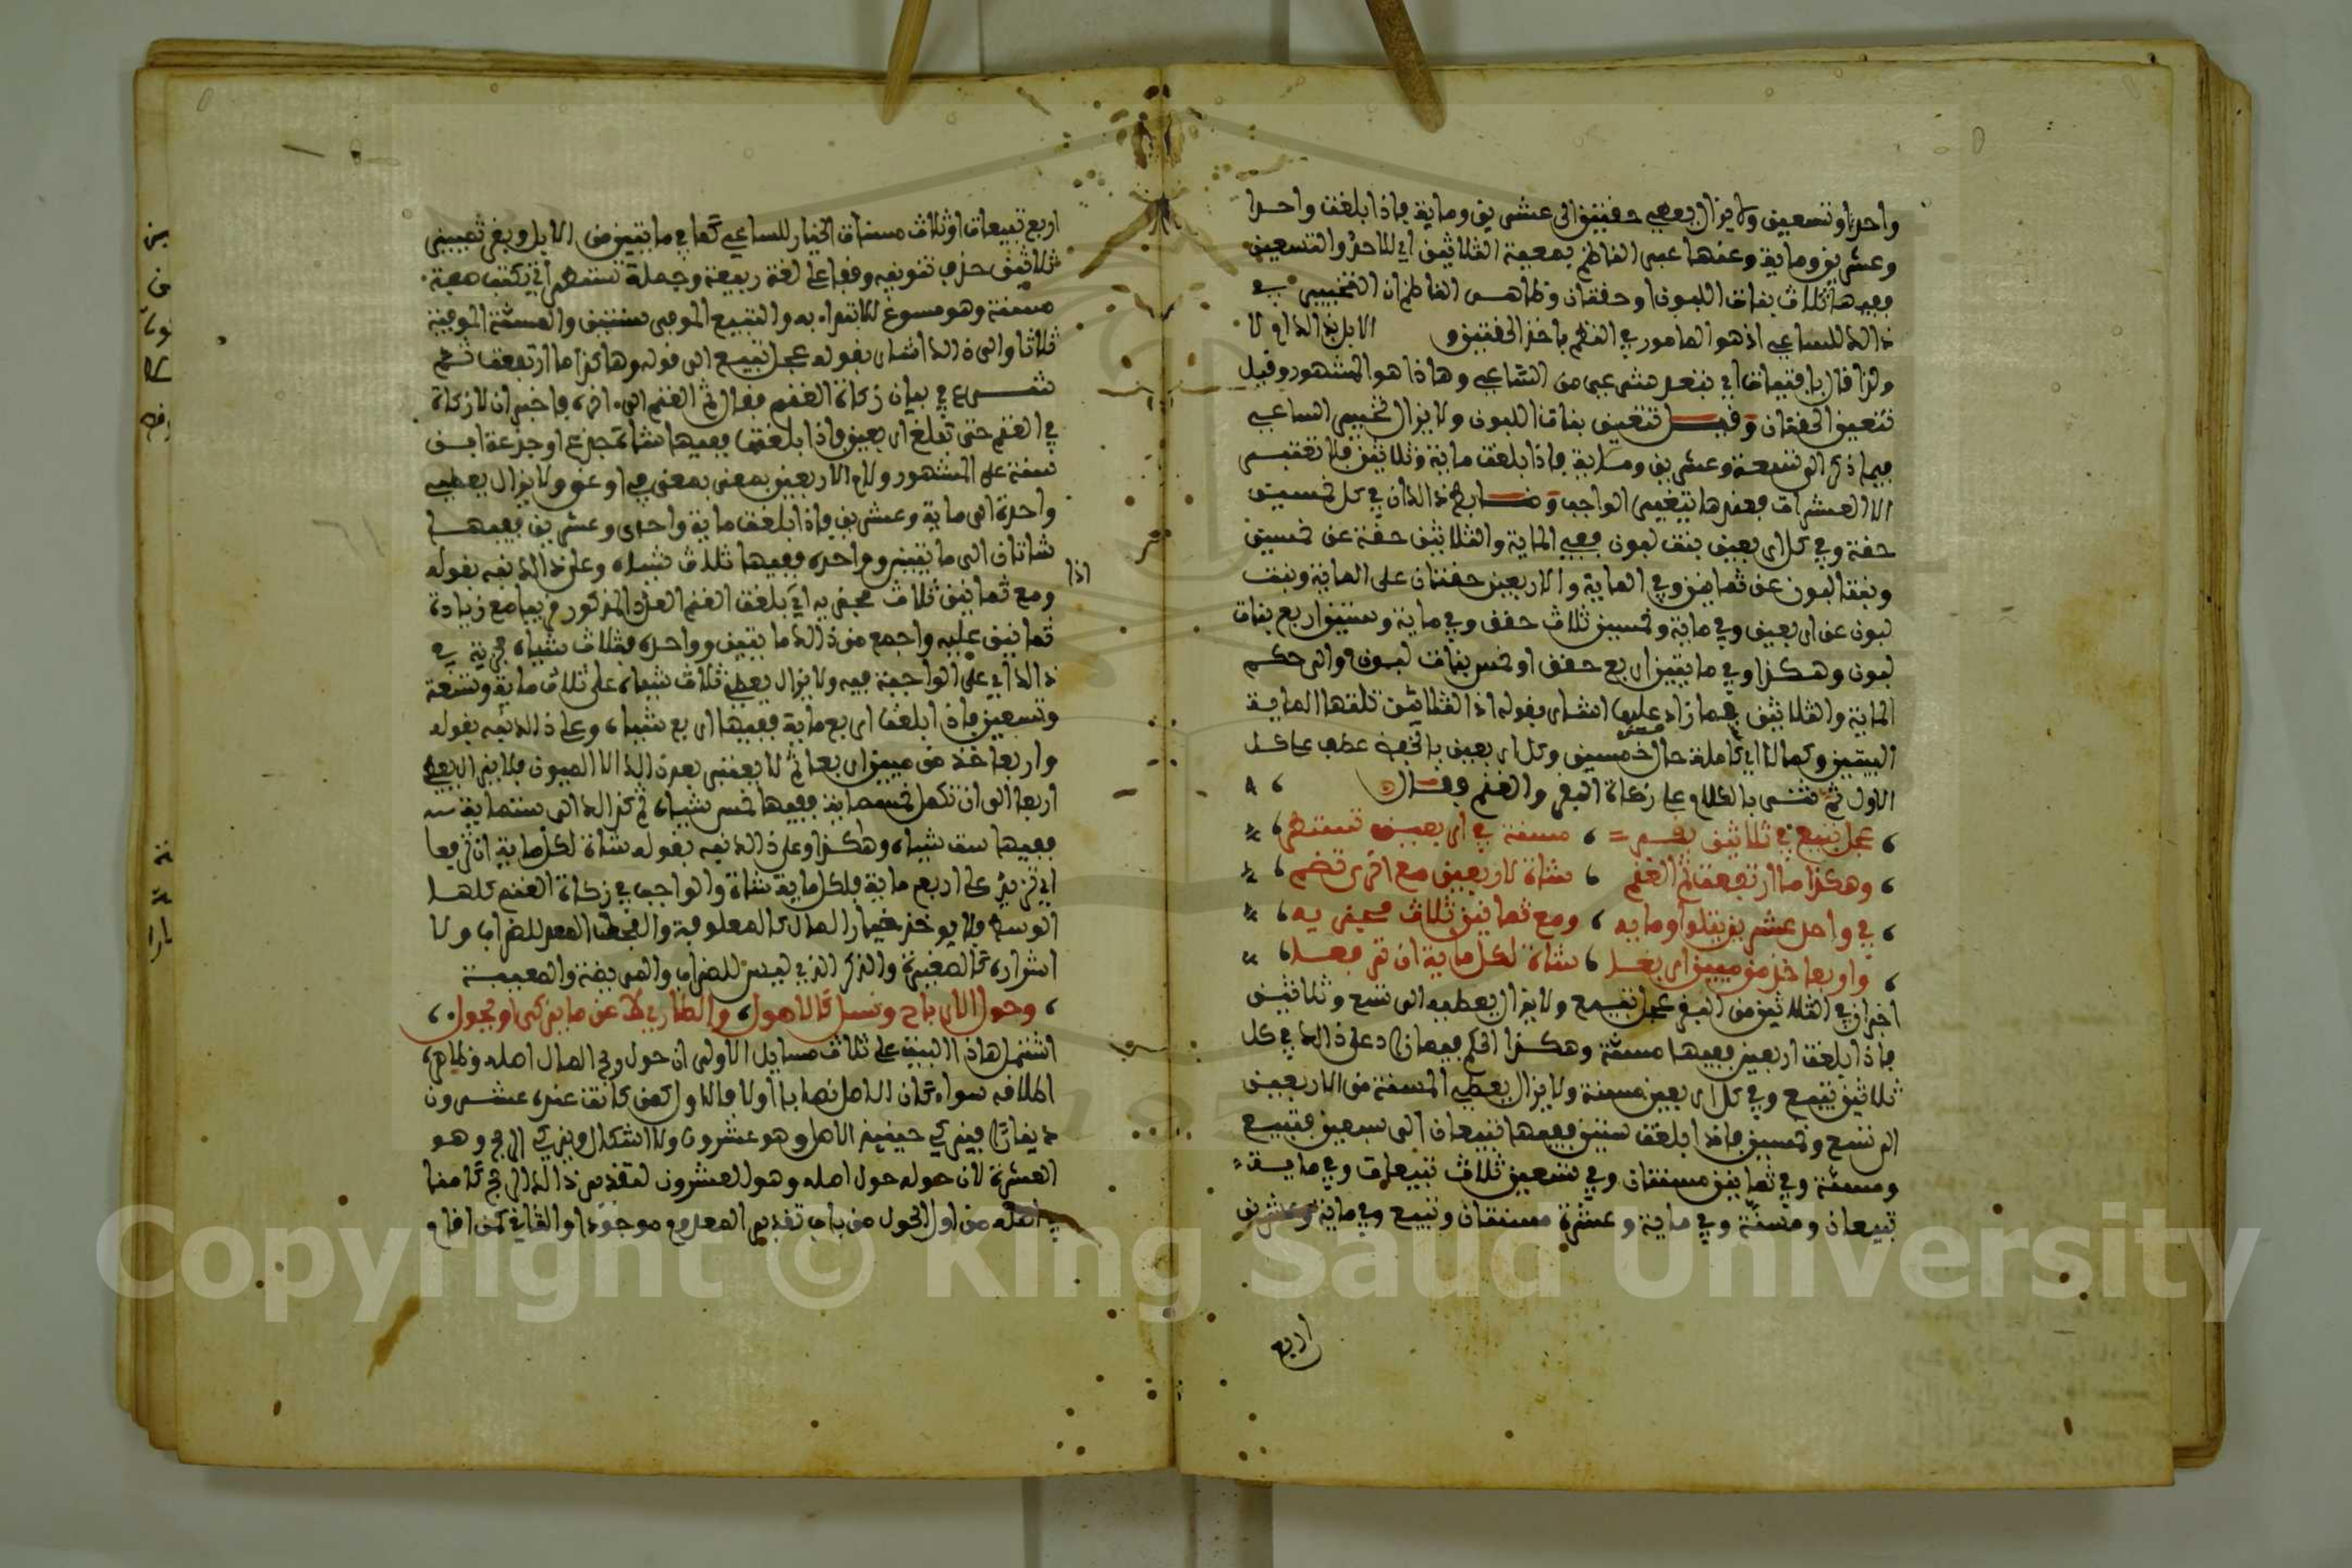 واحدا وتسعين ولا يزال يعطي حقتين الى عشرين وماية فاذا بلغت واحدا
وعشرين وماية وعنها عبر الناظم بمعية الثلاثين اي للاحد والتسعين
ففيها ثلاث بنات اللبون او حقتان وظاهر الناظم ان التخيير في
ذالك للساعي اذ هو المامور في النظم باخذ الحقتين و الابل بذالك او لا
ولذا قال بافتيات اي بتعد شرعي من الساعي وهاذا هو المشهور وقيل
تتعين الحقتان وقيل تتعين بنات اللبون ولا يزال تخيير الساعي
فيما ذكر الى تسعة وعشرين وماية فاذا بلغت ماية وثلاثين فلا تعتبر
الا العشرات فعندها يتغير الواجب وضابط ذالك ان في كل خمسين
حقة وفي كل اربعين بنت لبون ففي الماية والثلاثين حقة عن خمسين
وبنتا لبون عن ثمانين وفي الماية والاربعين حقتان على الماية وبنت
لبون عن اربعين وفي ماية وخمسين ثلاث حقق وفي ماية وستين اربع بنات
لبون وهكذا وفي مايتين اربع حقق او خمس بنات لبون والى حكم
الماية والثلاثين فما زاد عليها اشار بقوله اذا الثلاثين تلتها الماية
البيتين وكمالا اي كاملة حال من خمسين وكل اربعين بالخفض عطف على كل
الاول ثم ثنى بالكلام على زكاة البقر والغنم وقال
عجل تبيع في ثلاثين بقر مسنة في اربعين تستطر
وهكذا ما ارتفعت ثم الغنم شاة لاربعين مع اخرى تضم
في واحد عشرين يتلو وماية ومع ثمانين ثلاث مجزيه
واربعا خذ من ميين اربع شاة لكل ماية ان ترفع
اخبر ان في الثلاثين من البقر عجل تبيع ولا يزال يعطيه الى تسع وثلاثين
فاذا بلغت اربعين ففيها مسنة وهكذا الحكم فيما زاد على ذالك في كل
ثلاثين تبيع وفي كل اربعين مسنة ولا يزال يعطي المسنة من الاربعين
الى تسع وخمسين فاذا بلغت ستين ففيها تبيعان الى سبعين فتبيع
ومسنة وفي ثمانين مسنتان وفي تسعين ثلاث تبيعات وفي ماية
تبيعان ومسنة وفي ماية وعشرة مسنتان وتبيع وفي ماية وعشرين
اربع
اربع تبيعات او ثلاث مسنات الخيار للساعي كما في مايتين من الابل وبقر تمييز
ثلاثين حذف تنوينه وقفا على لغة ربيعة وجملة تستطر اي تكتب صفة
مسنة وهو مسوغ للابتداء به والتبيع الموفى سنتين والمسنة الموفية
ثلاثا والى ذالك اشار بقوله عجل تبيع الى قوله وهاكذا ما ارتفعت ثم
شرع في بيان زكاة الغنم فقال ثم الغنم الى اخره فاخبر ان لا زكاة
في الغنم حتى تبلغ اربعين فاذا بلغتها ففيها شاة جذع او جذعة ابن
سنة على المشهور ولام لاربعين بمعنى في او عن ولا يزال يعطي
واحدة الى ماية وعشرين فاذا بلغت ماية واحدى وعشرين ففيها
شاتان الى مايتين وواحدة ففيها ثلاث شياه وعلى ذالك نبه بقوله
اذا
ومع ثمانين ثلاث مجزيه اي بلغت الغنم العدد المذكور قريبا مع زيادة
ثمانين عليه واجمع من ذالك مايتين وواحدة فثلاث شياه مجزية في
ذالك اي على الواجبة فيه ولا يزال يعطي ثلاث شياه على ثلاث ماية وتسعة
وتسعين فاذا بلغت اربع ماية ففيها اربع شياه وعلى ذالك نبه بقوله
واربعا خذ من ميين اربعا ثم لا يعتبر بعد ذالك الا الميون فلا يزال يعطي
اربعا الى ان تكمل خمسماية ففيها خمس شياه ثم كذالك الى ستماية
ففيها ست شياه وهكذا وعلى ذالك نبه بقوله شاة لكل ماية ان ترفعا
اي تزيد على اربع ماية فلكل ماية شاة والواجب في زكاة الغنم كلها
الوسط فلا يوخذ خيار المال كالمعلوفة والفحل المعد للضراب ولا
اشراره كالصغيرة والذكر الذي ليس للضراب والمريضة والمعيبة
وحول الارباح ونسل كالاصول والطار لا عن ما يزكى ان يحول
اشتمل هاذا البيت على ثلاث مسايل الاولى ان حول ربح المال اصله وظاهر
اطلاقه سواء كان الاصل نصابا او لا فالاول كمن كانت عنده عشرون
دينارا فيزكي حينيذ الاصل وهو عشرون ولا اشكال ويزكي الربح وهو
العشرة لان حوله حول اصله وهو العشرون لتقدير ذالك الربح كامنا
في اصله من اول الحول من باب تقدير المعدوم موجودا والثاني كمن اقام
Copyright © King Saud University